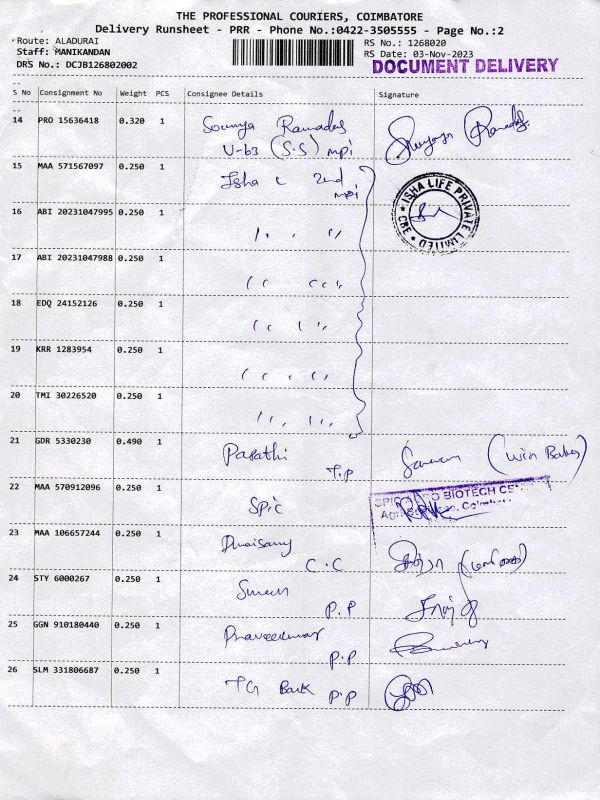 THE PROFESSIONAL COURIERS, COIMBATORE
Delivery Runsheet - PRR - Phone No.:0422-3505555 - Page No.:2
Route: ALADURAI RS No.: 1268020
Staff: MANIKANDAN RS Date: 03-Nov-2023
DRS No.: DCJB126802002 DOCUMENT DELIVERY
S No Consignment No Weight PCS Consignee Details Signature
14 PRO 15636418 0.320 1 Sowmya Ramadas
U-63 (S.S) mpi
15 MAA 571567097 0.250 1 Isha L 2nd
mpi
ISHA LIFE PRIVATE LIMITED * CBE *
16 ABI 20231047995 0.250 1
17 ABI 20231047988 0.250 1
18 EDQ 24152126 0.250 1
19 KRR 1283954 0.250 1
20 TMI 30226520 0.250 1
21 GDR 5330230 0.490 1 T.P
22 MAA 570912096 0.250 1 Spic
BIOTECH
23 MAA 106657244 0.250 1 C.C
24 STY 6000267 0.250 1 P.P
25 GGN 910180440 0.250 1 Praveenkumar
P.P
26 SLM 331806687 0.250 1 TG Bark P.P